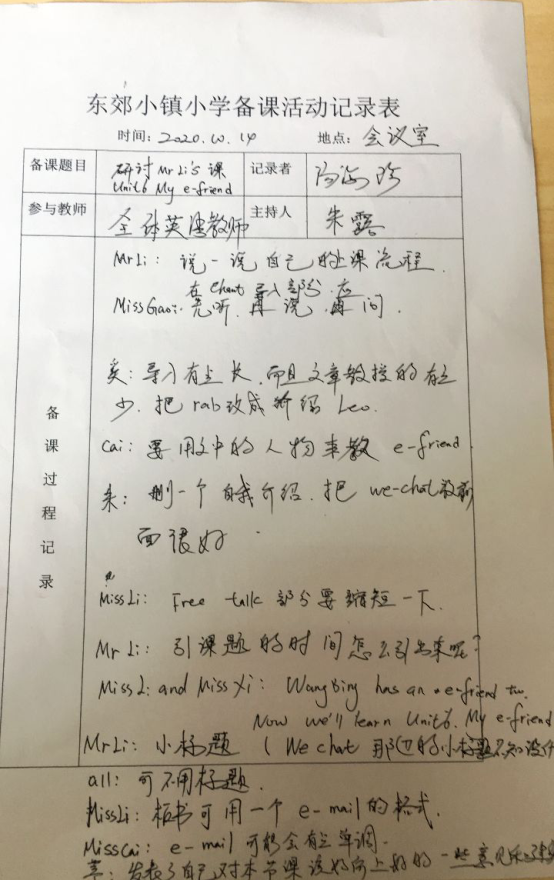 东郊小镇小学备课活动记录表
时间：2020.10.14 地点：会议室
备课题目 研讨Mr Li's课 记录者
Unit6 My e-friend
参与教师 全体英语教师 主持人 朱露
备课过程记录
Mr Li： 说一说自己的上课流程.
在chant导入部分,应
Miss Gao: 先听,再说,再问.
奚: 导入有些长,而且文章教授的有些
少.把rab改成介绍Leo.
Cai: 要用文中的人物来教 e-friend.
朱: 删一个自我介绍.把we-chat放前
面很好.
Miss Li: Free talk 部分要缩短一下.
Mr Li: 引课题的时间怎么引出来呢?
Miss Li and Miss Xi: Wang Bing has an e-friend too.
Now we'll learn Unit6. My e-friend
Mr Li: 小标题 (We chat 那边的小标题不知设什
all: 可不用标题.
Miss Li: 板书可用一个 e-mail 的格式.
Miss Cai: e-mail 可能会有些单调.
发表了自己对本节课 的一些意见和